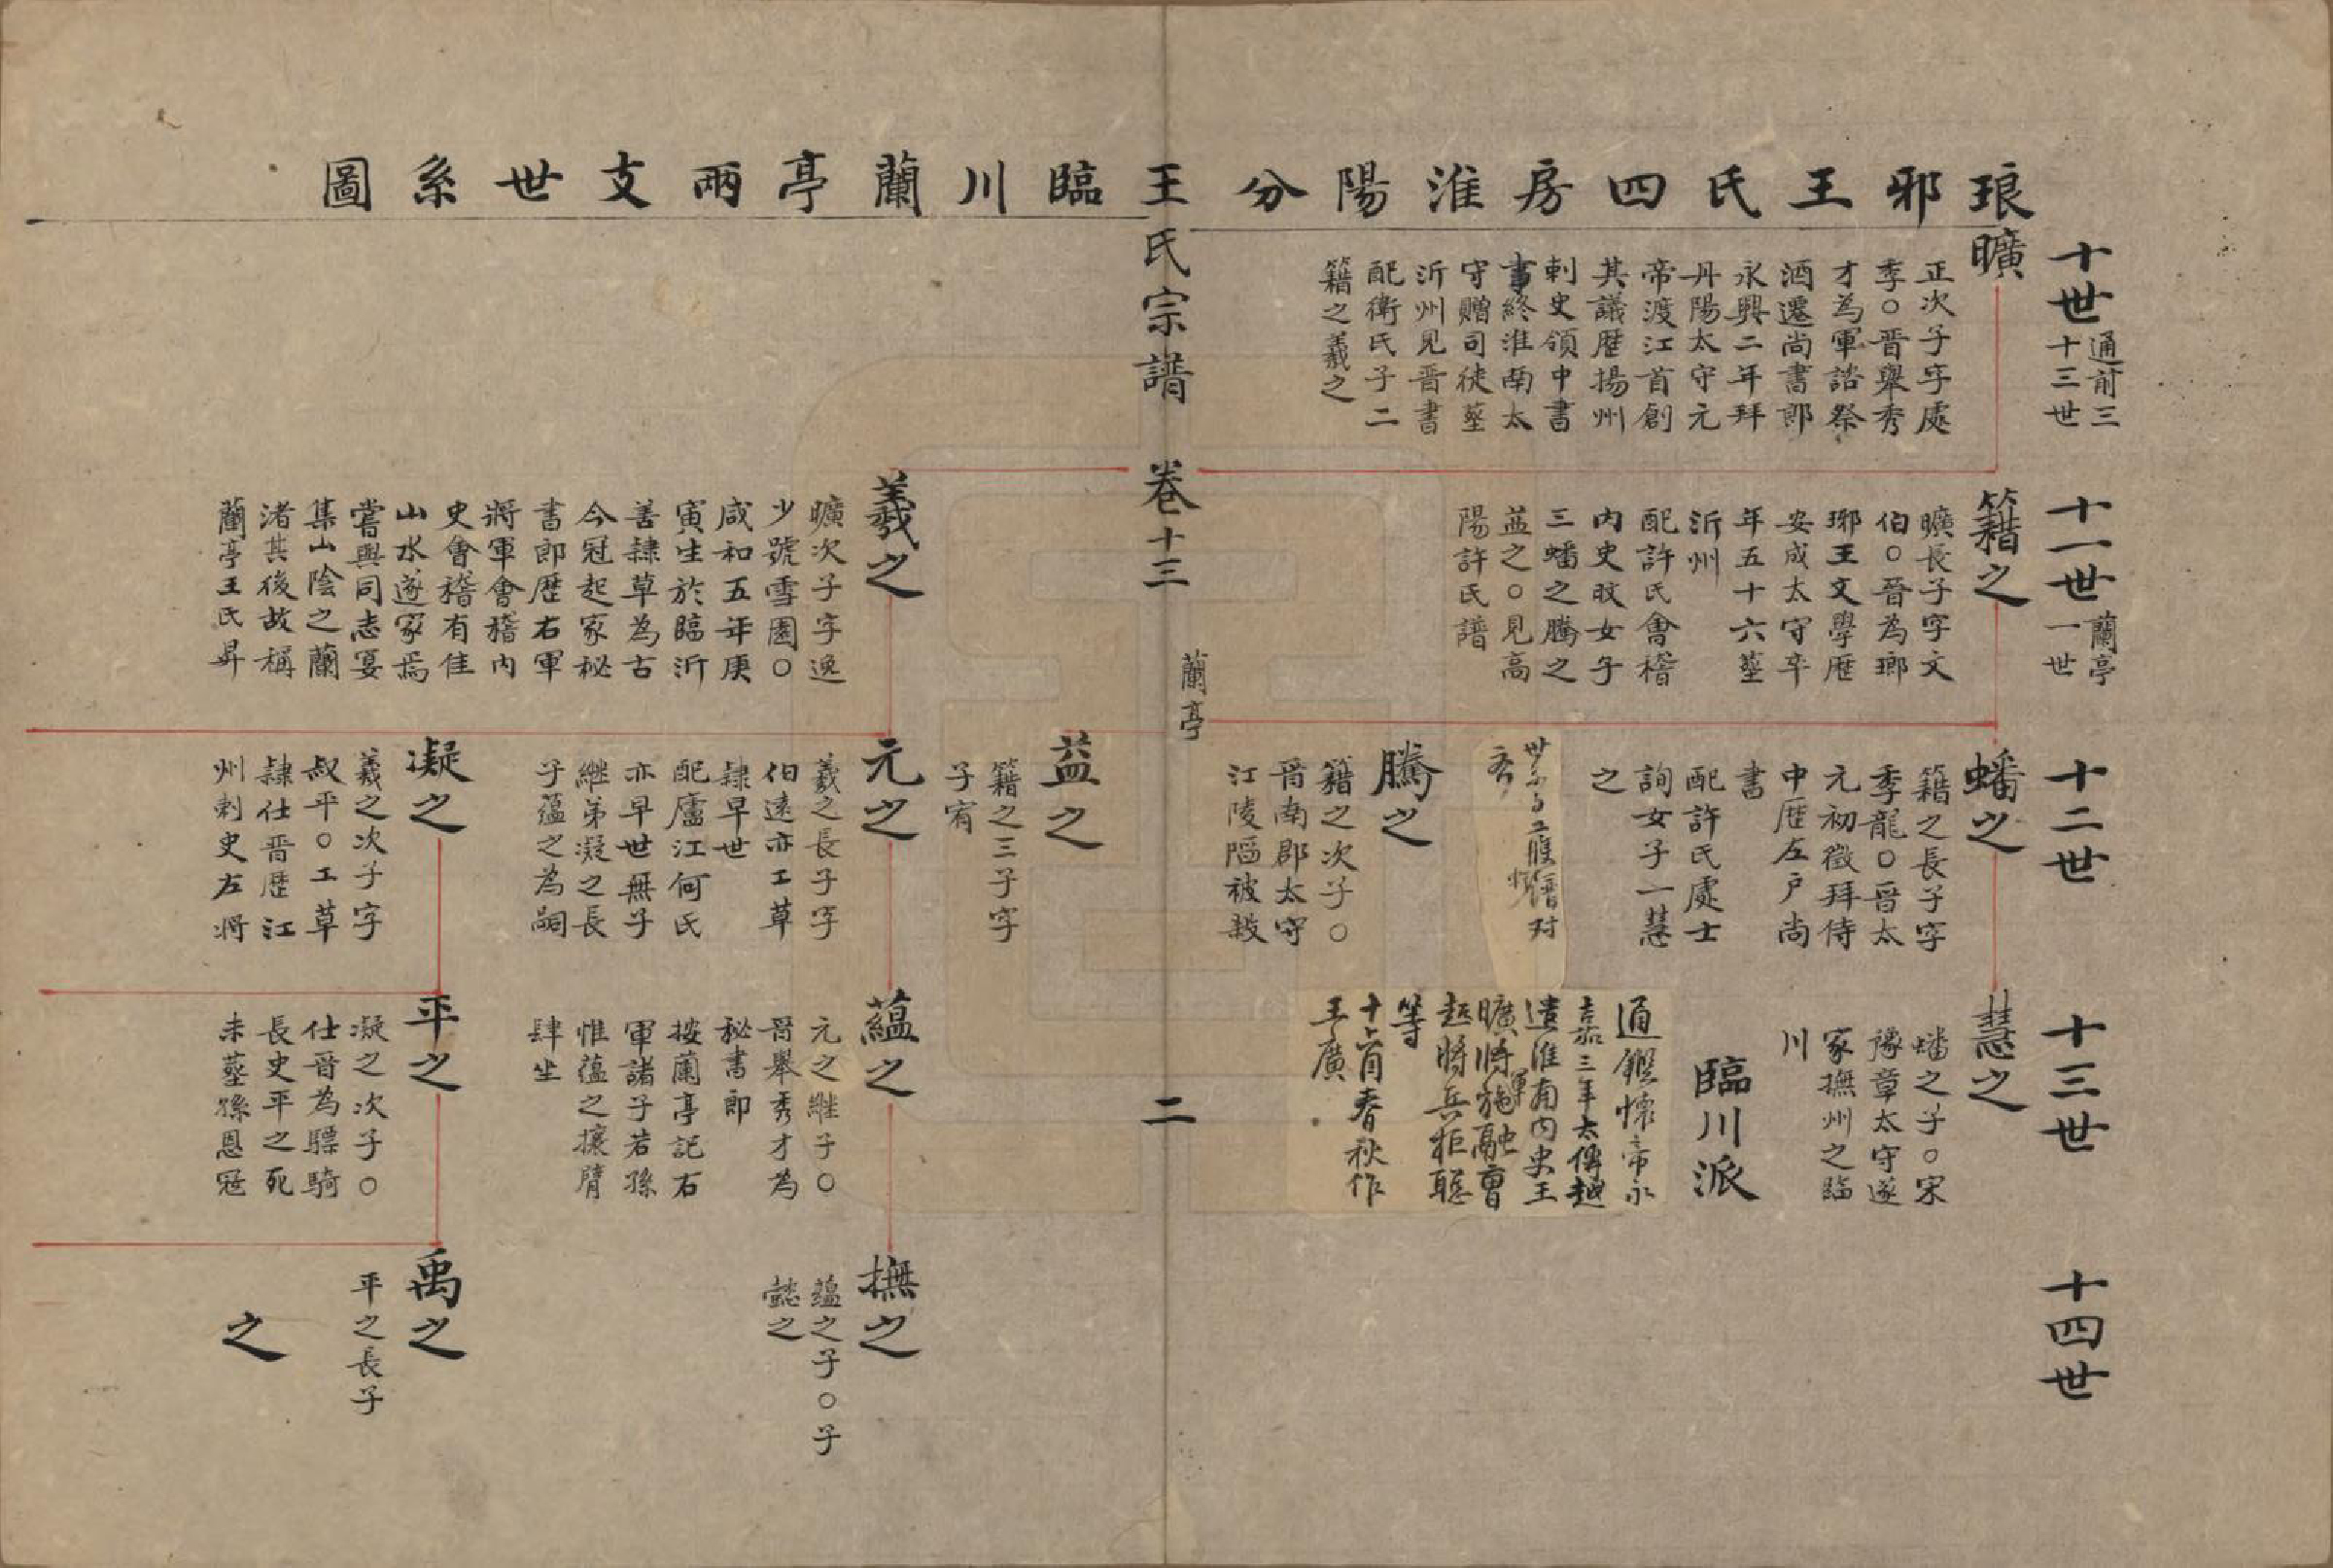 琅邪王氏四房淮陽分臨川蘭亭兩支世系圖
王氏宗譜
卷十三
蘭亭
二
十世
通前三
十三世
曠
正次子字處
季○晋舉秀
才為軍諮祭
酒遷尚書郎
永興二年拜
丹陽太守元
帝渡江首創
其議歷揚州
剌史領中書
事終淮南太
守贈司徒塟
沂州見晋書
配衛氏子二
籍之羲之
十一世
蘭亭
一世
籍之
曠長子字文
伯○晉為瑯
琊王文學歷
安成太守卒
年五十六塟
沂州
配許氏會稽
内史旼女子
三蟠之騰之
益之○見高
陽許氏譜
羲之
曠次子字逸
少號雪園○
咸和五年庚
寅生於臨沂
善隷草為古
今冠起家秘
書郎歷右軍
將軍會稽内
史會稽有佳
山水遂家焉
嘗與同志宴
集山陰之蘭
渚其後故稱
蘭亭王氏昇
十二世
蟠之
籍之長子字
季龍○晋太
元初徵拜侍
中歷左戶尚
書
配許氏處士
詢女子一慧
之
騰之
籍之次子○
晉南郡太守
江陵陷被殺
益之
籍之三子字
子宥
元之
羲之長子字
伯遠亦工草
隷早世
配廬江何氏
亦早世無子
繼弟凝之長
子蘊之為嗣
凝之
羲之次子字
叔平○工草
隷仕晋歷江
州剌史左將
十三世
慧之
蟠之子○宋
豫章太守遂
家撫州之臨
川
臨川派
通鑑懷帝永
嘉三年太傅越
遣淮南内史王
曠將軍施融曹
超將兵拒聡
等
十六國春秋作
王廣
蘊之
元之継子○
晉舉秀才為
秘書郎
按蘭亭記右
軍諸子若孫
惟蘊之攘臂
肆坐
平之
凝之次子○
仕晉為驃騎
長史平之死
未塟孫恩冦
十四世
撫之
蘊之子○子
懿之
禹之
平之長子
之